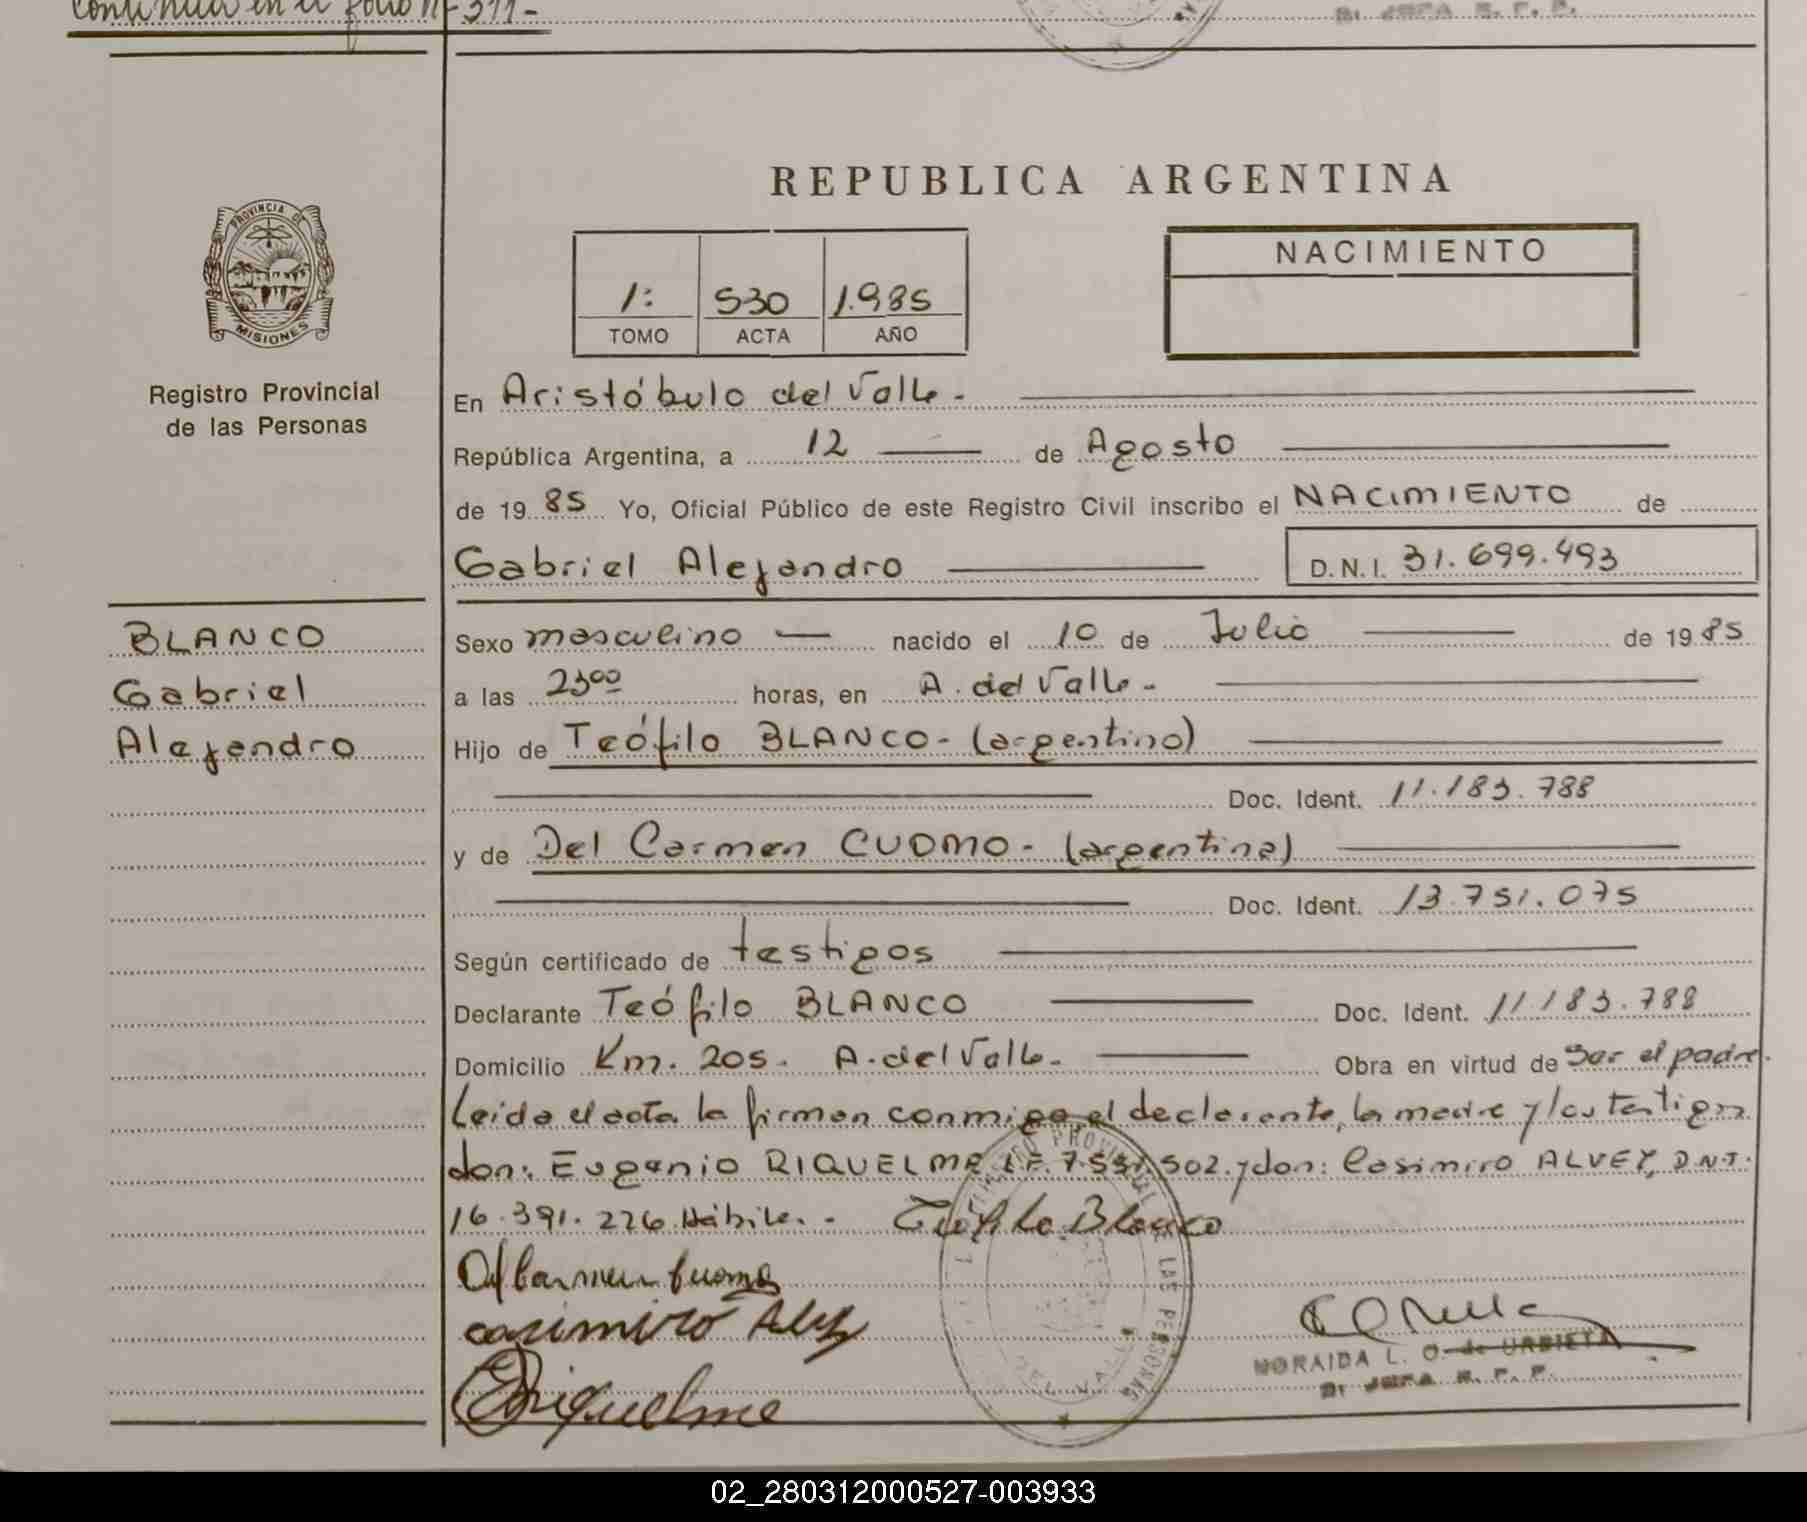 Continúa en el folio Nº 311-
Dr. JEFA R. P. P.
REPUBLICA ARGENTINA
PROVINCIA DE
MISIONES
NACIMIENTO
1: 530 1.985
TOMO ACTA AÑO
Registro Provincial
de las Personas
En Aristóbulo del Valle.
República Argentina, a 12 de Agosto
de 1985 Yo, Oficial Público de este Registro Civil inscribo el NACIMIENTO de
Gabriel Alejandro D.N.I. 31.699.493
BLANCO
Gabriel
Alejandro
Sexo masculino nacido el 10 de Julio de 1985
a las 23⁰⁰ horas, en A. del Valle-
Hijo de Teófilo BLANCO- (argentino)
Doc. Ident. 11.183.788
y de Del Carmen CUOMO- (argentina)
Doc. Ident. 13.751.075
Según certificado de testigos
Declarante Teófilo BLANCO Doc. Ident. 11183.788
Domicilio Km. 205. A. del Valle. Obra en virtud de Ser el padre.
Leida el acta la firman conmigo el declarante, la madre y los testigos
don: Eugenio RIQUELME L.E. 7.531.502. y don: Casimiro ALVEZ, D.N.I.
16.391.226. Hábiles.- Teofilo Blanco
Del Carmen Cuomo
casimiro Alvez
ERiquelme
REGISTRO PROVINCIAL DE LAS PERSONAS
DEL VALLE
NORAIDA L. O. de URBIETA